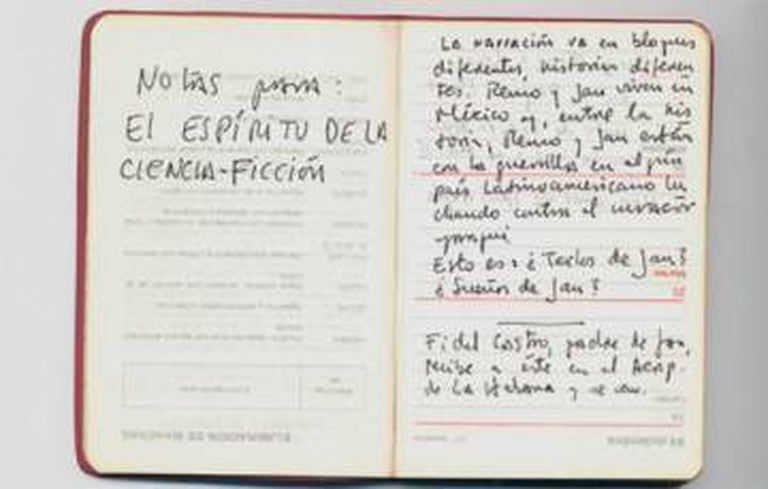 Notas para:
El ESPÍRITU DE LA
CIENCIA-FICCIÓN
La narración va en bloques
diferentes, historias diferen
tes. Remo y Jan viven en
México y, entre la his
toria, Remo y Jan están
con la guerrilla en algún
país Latinoamericano lu
chando contra el invasor
yanqui
Esto es: ¿Textos de Jan?
¿Sueños de Jan?
Fidel Castro, padre de Jan,
recibe a éste en el Aerop.
de La Habana y se